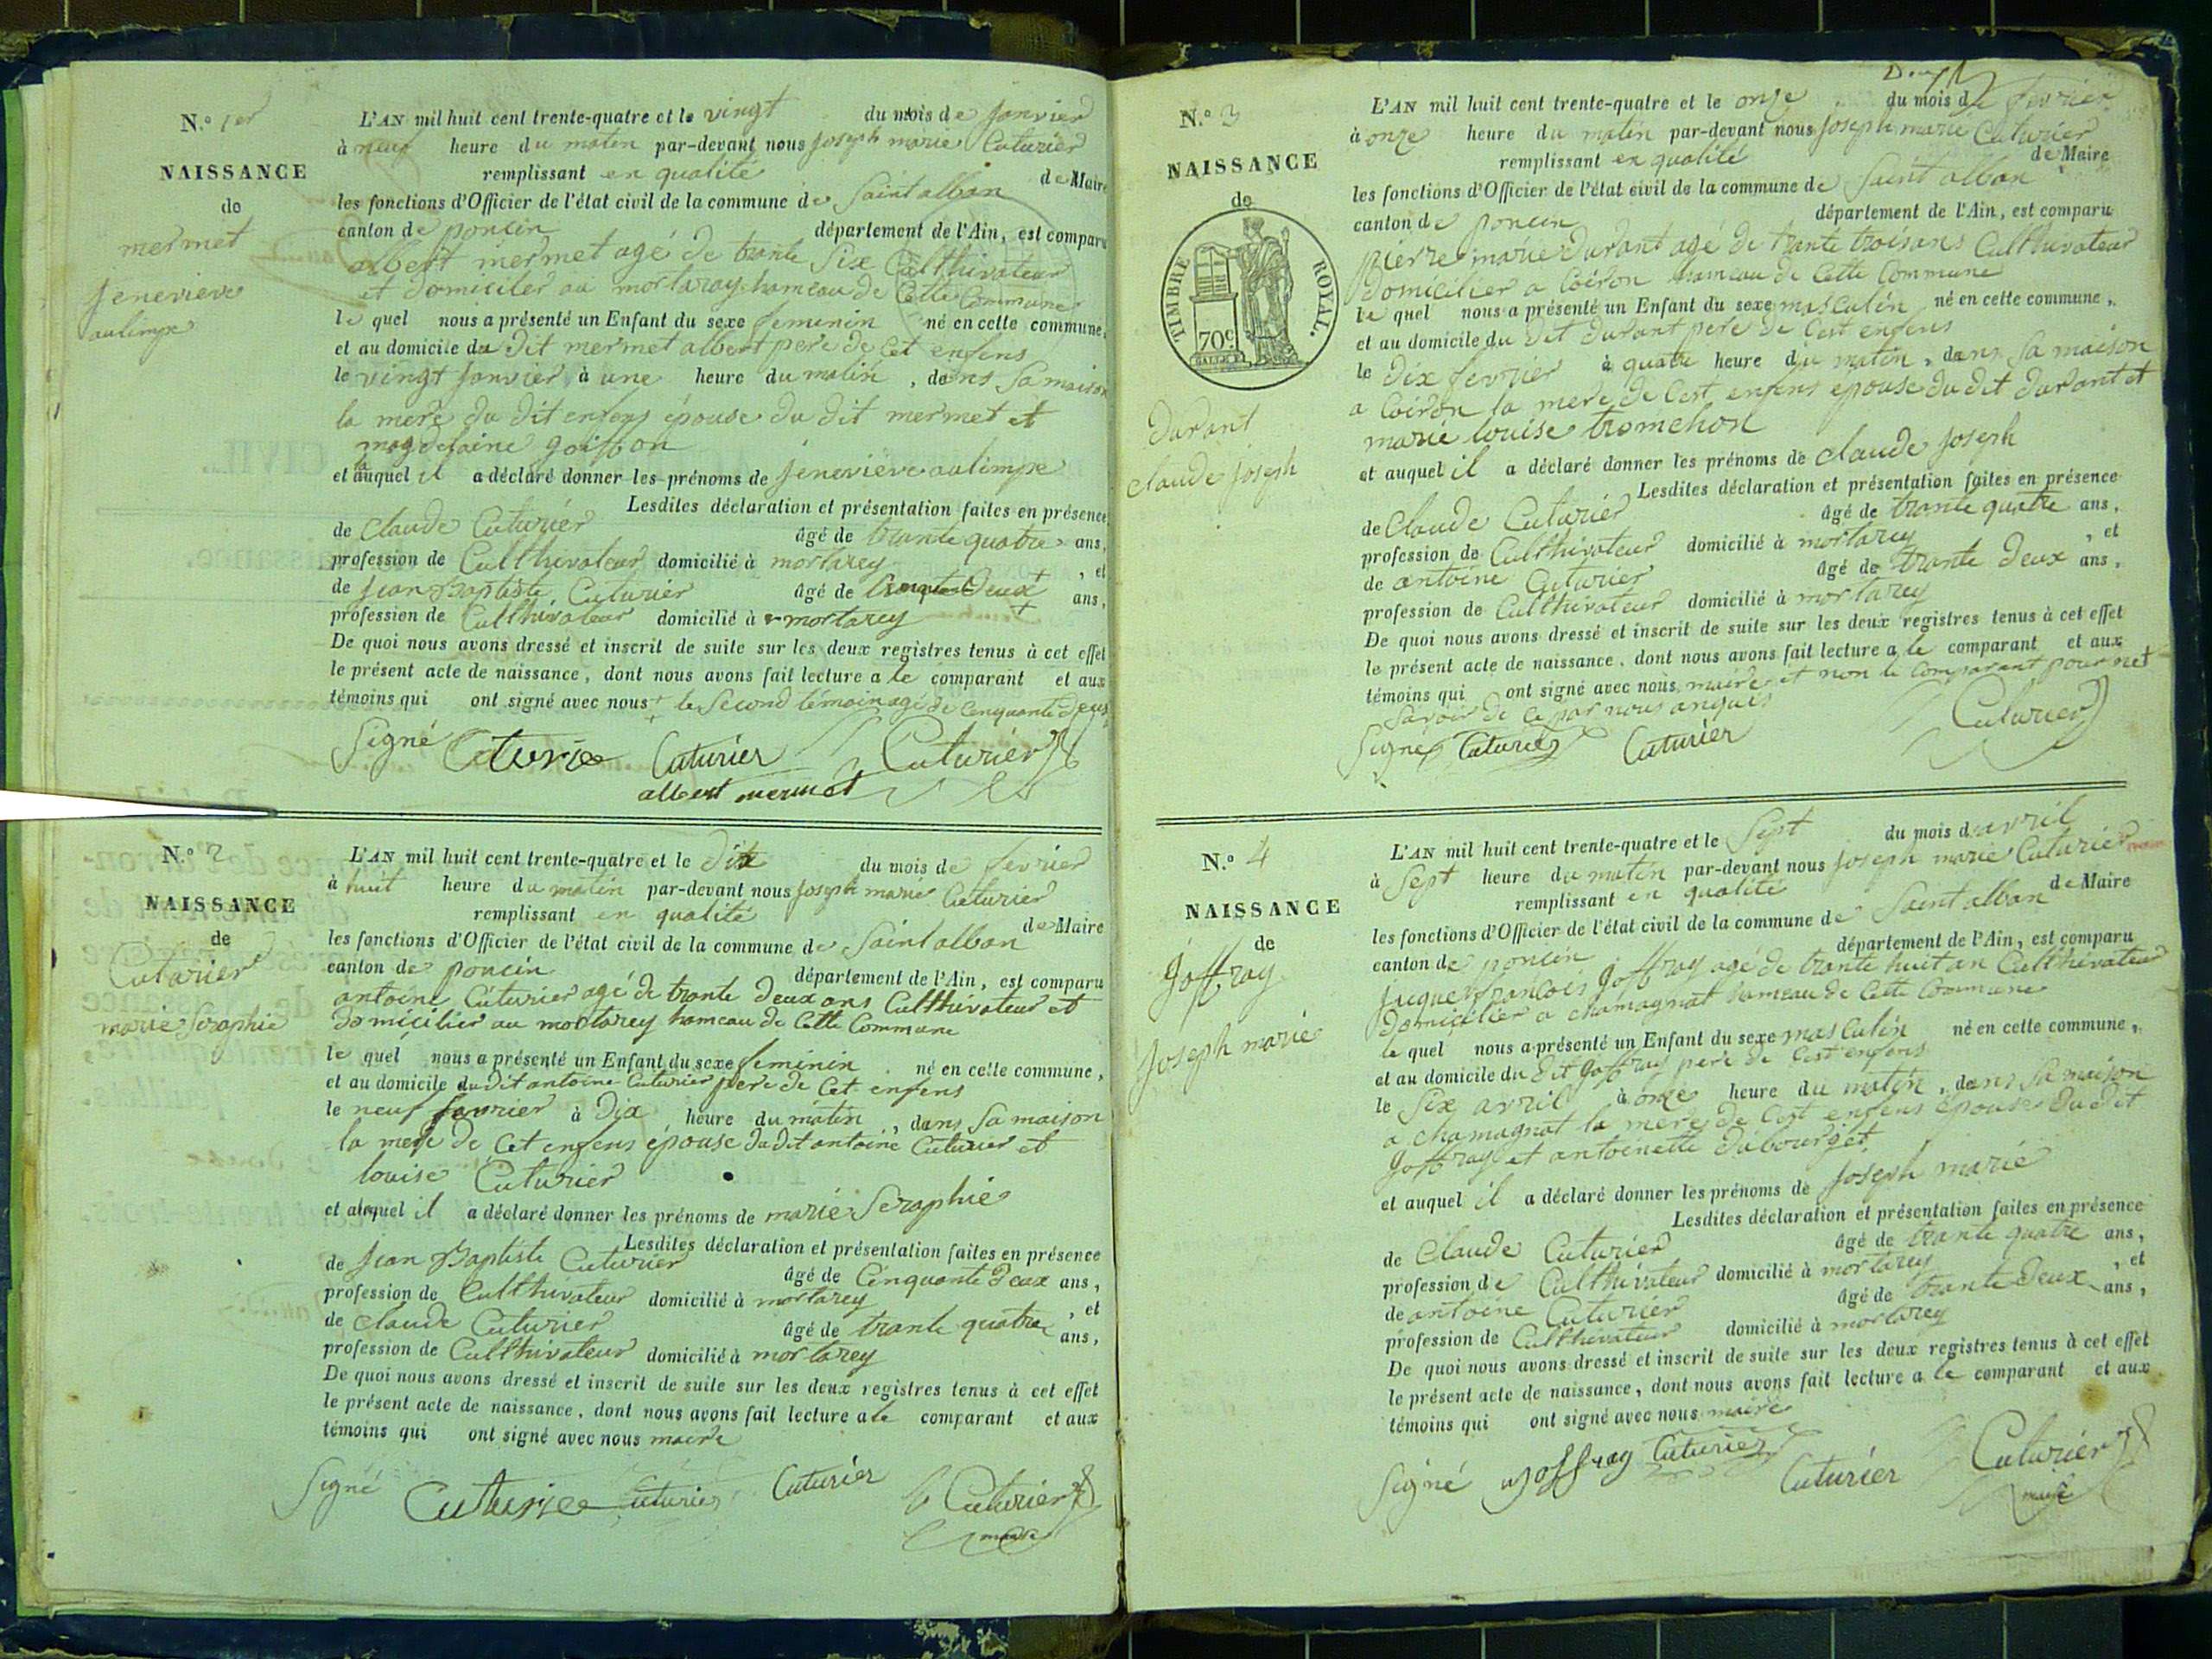 N.º 1er
NAISSANCE
de
mermet
jeneviève
aulimpe
L'AN mil huit cent trente-quatre et le vingt du mois de janvier
à neuf heure du matin par-devant nous joseph marie Cuturier
remplissant en qualité de Maire
les fonctions d'Officier de l'état civil de la commune de Saint alban
canton de poncin département de l'Ain, est comparu
albert mermet agé de trante Six Culthivateur
et domicilier au mortaray hameau de Cette Commune
le quel nous a présenté un Enfant du sexe feminin né en cette commune,
et au domicile du dit mermet albert pere de cet enfens
le vingt janvier à une heure du matin, dans Sa maison
la mere du dit enfens épouse du dit mermet et
magdelaine goiffon
et auquel il a déclaré donner les prénoms de jeneviève aulimpe
Lesdites déclaration et présentation faites en présence
de Claude Cuturier âgé de trante quatre ans,
profession de Culthivateur domicilié à mortarey, et
de jean Baptiste Cuturier âgé de Deux ans,
profession de Culthivateur domicilié à mortarey
De quoi nous avons dressé et inscrit de suite sur les deux registres tenus à cet effet
le présent acte de naissance, dont nous avons fait lecture a le comparant et aux
témoins qui ont signé avec nous + le Second témoin agé de cenquante deux
Signé Cuturier Cuturier Cuturier
albert mermet
N.º 2
NAISSANCE
de
Cuturier
marie Seraphie
L'AN mil huit cent trente-quatre et le dix du mois de fevrier
à huit heure du matin par-devant nous joseph marie Cuturier
remplissant en qualité de Maire
les fonctions d'Officier de l'état civil de la commune de Saint alban
canton de poncin département de l'Ain, est comparu
antoine Cuturier agé de trante deux ans Culthivateur et
domicilier au mortarey hameau de Cette Commune
le quel nous a présenté un Enfant du sexe feminin né en cette commune,
et au domicile du dit antoine Cuturier pere de Cet enfens
le neuf fevrier à dix heure du matin, dans Sa maison
la mere de Cet enfens épouse du dit antoine Cuturier et
louise Cuturier
et auquel il a déclaré donner les prénoms de marie Seraphie
Lesdites déclaration et présentation faites en présence
de jean Baptiste Cuturier âgé de Cenquante deux ans,
profession de Culthivateur domicilié à mortarey, et
de Claude Cuturier âgé de trante quatre ans,
profession de Culthivateur domicilié à mortarey
De quoi nous avons dressé et inscrit de suite sur les deux registres tenus à cet effet
le présent acte de naissance, dont nous avons fait lecture a le comparant et aux
témoins qui ont signé avec nous maire
Signé Cuturier Cuturier Cuturier Cuturier
maire
N.º 3
NAISSANCE
de
TIMBRE ROYAL.
70c
durant
claude joseph
L'AN mil huit cent trente-quatre et le onze du mois de fevrier
à onze heure du matin par-devant nous joseph marie Cuturier
remplissant en qualité de Maire
les fonctions d'Officier de l'état civil de la commune de Saint alban
canton de poncin département de l'Ain, est comparu
pierre marie durant agé de trante trois ans Culthivateur
domicilier a Coiron hameau de Cette Commune
le quel nous a présenté un Enfant du sexe masculin né en cette commune,
et au domicile du dit durant pere de Cest enfens
le dix fevrier à quatre heure du matin, dans Sa maison
a Coiron la mere de Cest enfens epouse du dit durant et
marie louise tromchon
et auquel il a déclaré donner les prénoms de claude joseph
Lesdites déclaration et présentation faites en présence
de Claude Cuturier âgé de trante quatre ans,
profession de Culthivateur domicilié à mortarey, et
de antoine Cuturier âgé de trante deux ans,
profession de Culthivateur domicilié à mortarey
De quoi nous avons dressé et inscrit de suite sur les deux registres tenus à cet effet
le présent acte de naissance, dont nous avons fait lecture a le comparant et aux
témoins qui ont signé avec nous maire et non le Comparant pour
Savoir de ce par nous anquis
Signé Cuturier Cuturier Cuturier
N.º 4
NAISSANCE
de
goffray
joseph marie
L'AN mil huit cent trente-quatre et le Sept du mois d'avril
à Sept heure du matin par-devant nous joseph marie Cuturier
remplissant en qualité de Maire
les fonctions d'Officier de l'état civil de la commune de Saint alban
canton de poncin département de l'Ain, est comparu
jacque françois goffray agé de trante huit an Culthivateur
domicilier a chamagnat hameau de Cette Commune
le quel nous a présenté un Enfant du sexe masculin né en cette commune,
et au domicile du dit goffray pere de Cest enfens
le Six avril à onze heure du matin, dans Sa maison
a chamagnat la mere de Cest enfens épouse du dit
goffray et antoinette dubourget
et auquel il a déclaré donner les prénoms de joseph marie
Lesdites déclaration et présentation faites en présence
de Claude Cuturier âgé de trante quatre ans,
profession de Culthivateur domicilié à mortarey, et
de antoine Cuturier âgé de trante deux ans,
profession de Culthivateur domicilié à mortarey
De quoi nous avons dressé et inscrit de suite sur les deux registres tenus à cet effet
le présent acte de naissance, dont nous avons fait lecture a le comparant et aux
témoins qui ont signé avec nous maire
Signé goffray Cuturier Cuturier Cuturier
maire